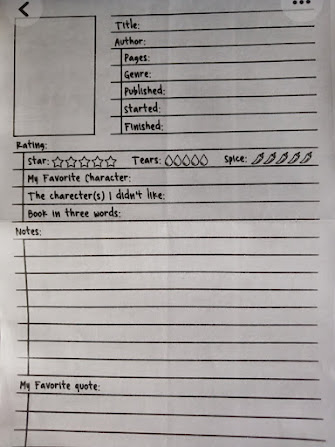 Title:
Author:
Pages:
Genre:
Published:
Started:
Finished:
Rating:
Star: Tears: Spice:
My Favorite Character:
The charecter(s) I didn't like:
Book in three words:
Notes:
My Favorite quote: